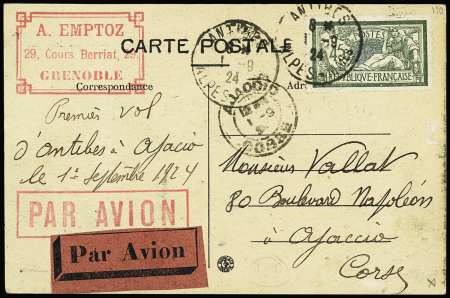 A. EMPTOZ
29, Cours Berriat, 29
GRENOBLE
CARTE POSTALE
Correspondance
Adr
ANTIBES
1 -9
24
ALPES
ANTIBES
8
1 -9
24
ALPES
POSTES
45
RÉPUBLIQUE FRANÇAISE
AJACCIO
1 -9
CORSE
Premier vol
d'antibes à Ajaccio
le 1er Septembre 1924
PAR AVION
Par Avion
Monsieur Vallat
80 Boulevard Napoléon
à Ajaccio
Corse